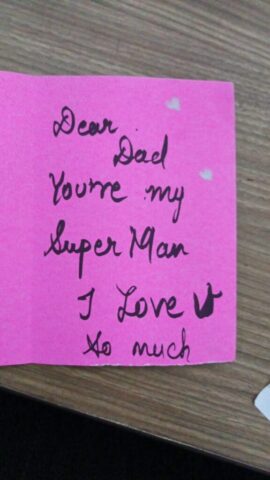 Dear
Dad
You're my
Super Man
I Love U
so much